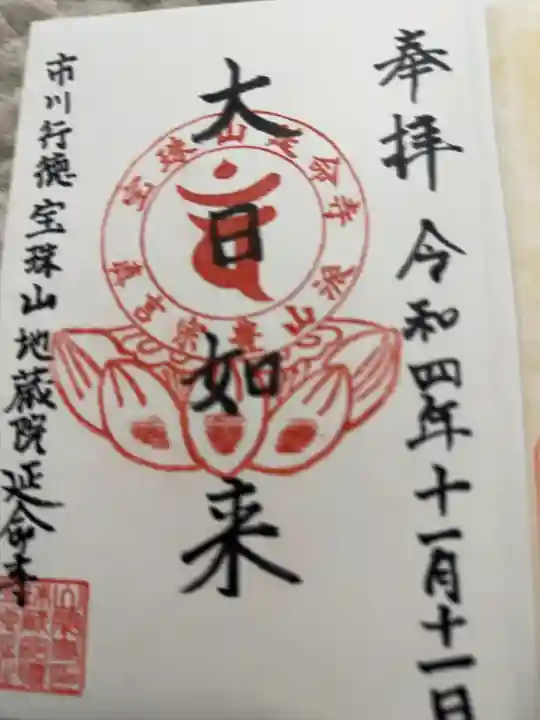 奉拝 令和四年十一月十一日
大日如来
宝珠山延命寺
真言宗豊山派
市川行徳宝珠山地蔵院延命寺